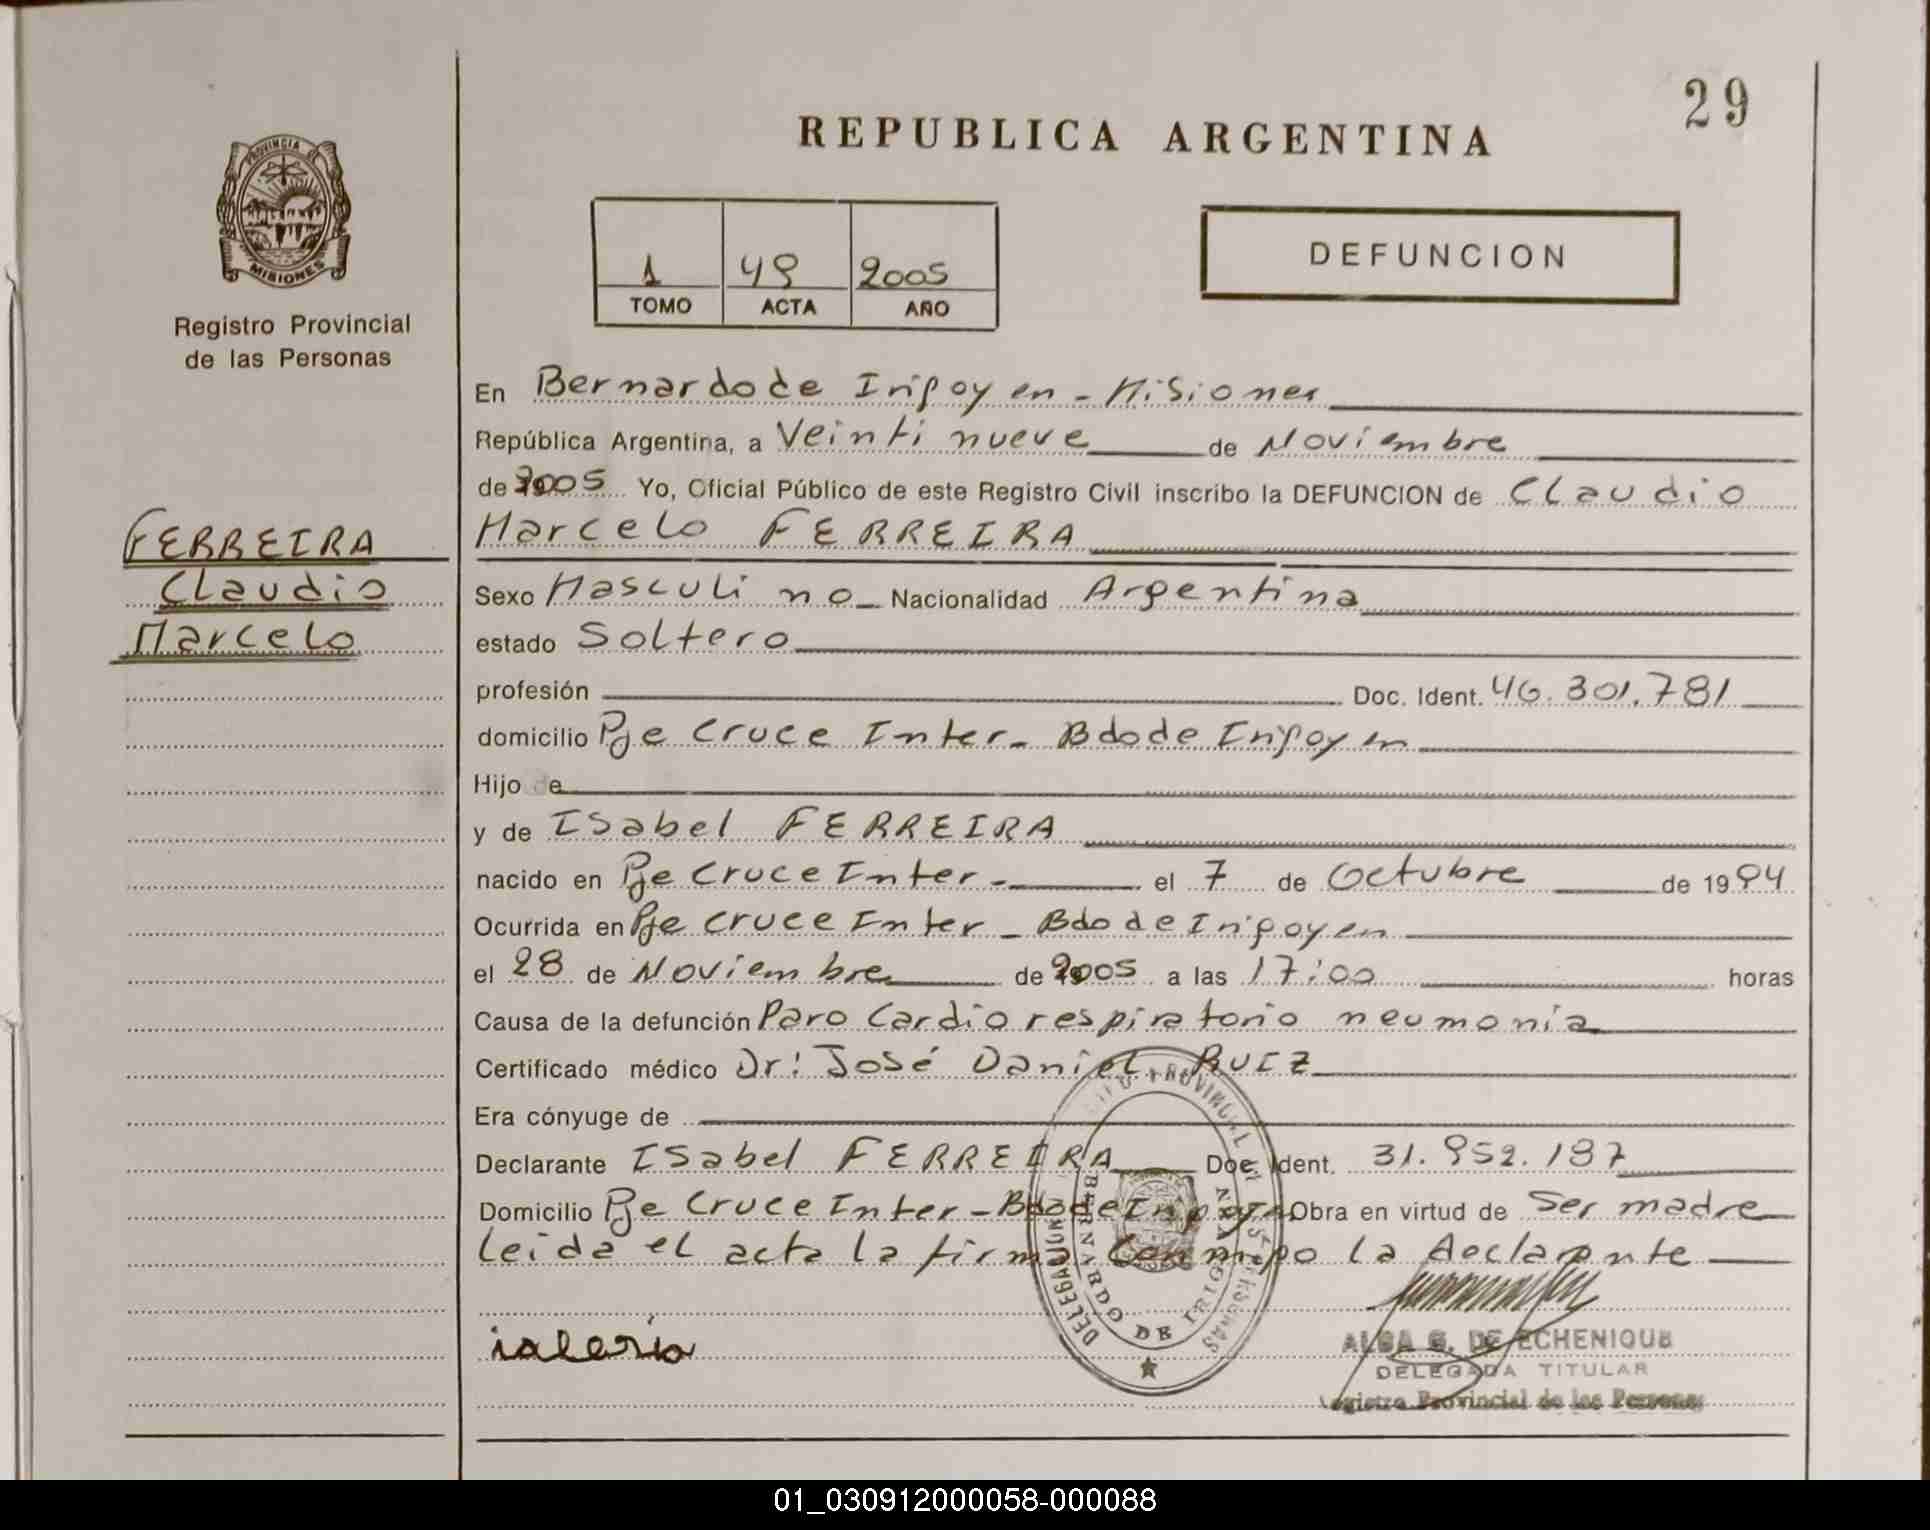 29
REPUBLICA ARGENTINA
PROVINCIA DE
MISIONES
Registro Provincial
de las Personas
1 49 2005
TOMO ACTA AÑO
DEFUNCION
En Bernardo de Irigoyen - Misiones
República Argentina, a Veinti nueve de Noviembre
de 2005 Yo, Oficial Público de este Registro Civil inscribo la DEFUNCION de Claudio
Marcelo FERREIRA
FERREIRA
Claudio
Marcelo
Sexo Masculino Nacionalidad Argentina
estado Soltero
profesión Doc. Ident. 46.301.781
domicilio Pje Cruce Inter - Bdo de Irigoyen
Hijo de
y de Isabel FERREIRA
nacido en Pje Cruce Inter - el 7 de Octubre de 1994
Ocurrida en Pje Cruce Inter - Bdo de Irigoyen
el 28 de Noviembre de 2005 a las 17:00 horas
Causa de la defunción Paro Cardio respiratorio neumonia
Certificado médico Dr: José Daniel RUIZ
Era cónyuge de
Declarante Isabel FERREIRA Doc. Ident. 31.952.187
Domicilio Pje Cruce Inter - Bdo de Irigoyen Obra en virtud de Ser madre
leida el acta la firma conmigo la declarante
DELEGACION BERNARDO DE IRIGOYEN
ALBA G. DE ECHENIQUE
DELEGADA TITULAR
Registro Provincial de las Personas
01_030912000058-000088